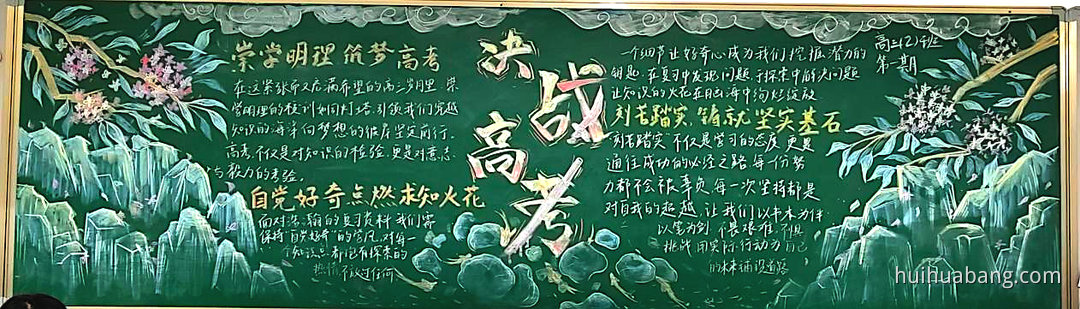 崇学明理 筑梦高考
在这紧张而又充满希望的高三岁月里 崇
学明理的校训如同灯塔,引领我们穿越
知识的海洋向梦想的彼岸坚定前行.
高考,不仅是对知识的检验,更是对意志
与毅力的考验.
自觉好奇点燃求知火花
面对浩瀚的复习资料 我们需
保持"自觉好奇"的学风,对每一
个知识点都抱有探索的
热情 不放过任何
决战
高考
一个细节让好奇心成为我们挖掘潜力的
钥匙,在复习中发现问题,于探索中解决问题
让知识的火花在脑海中绚烂绽放
刻苦踏实,铸就坚实基石
刻苦踏实 不仅是学习的态度 更是
通往成功的必经之路 每一份努
力都不会被辜负 每一次坚持都是
对自我的超越,让我们以书本为伴
以笔为剑 不畏艰难 不惧
挑战 用实际行动为自己
的未来铺设道路
高三(2)班
第一期
huihuabang.com